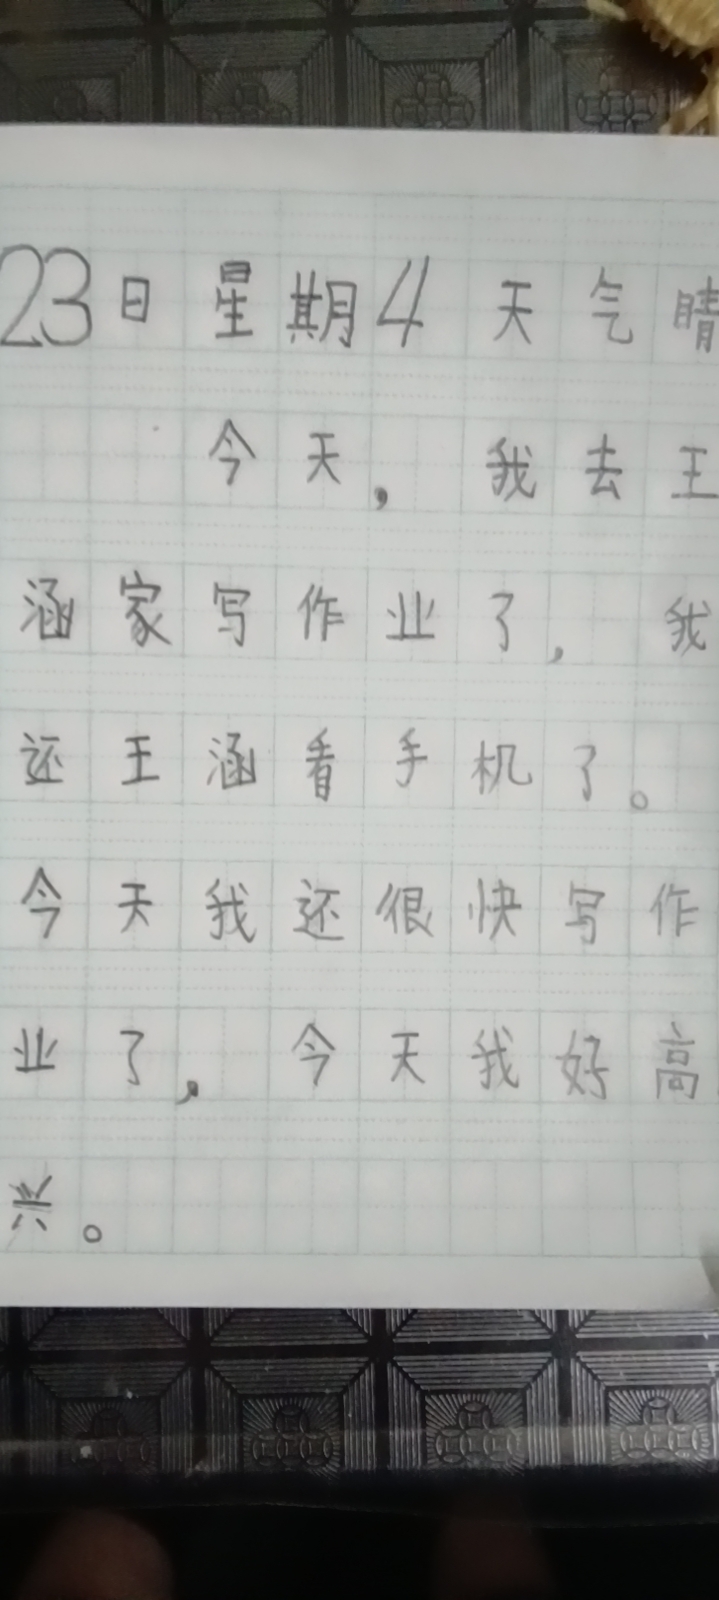 23日星期4 天气晴
今天，我去王
涵家写作业了，我
还王涵看手机了。
今天我还很快写作
业了，今天我好高
兴。